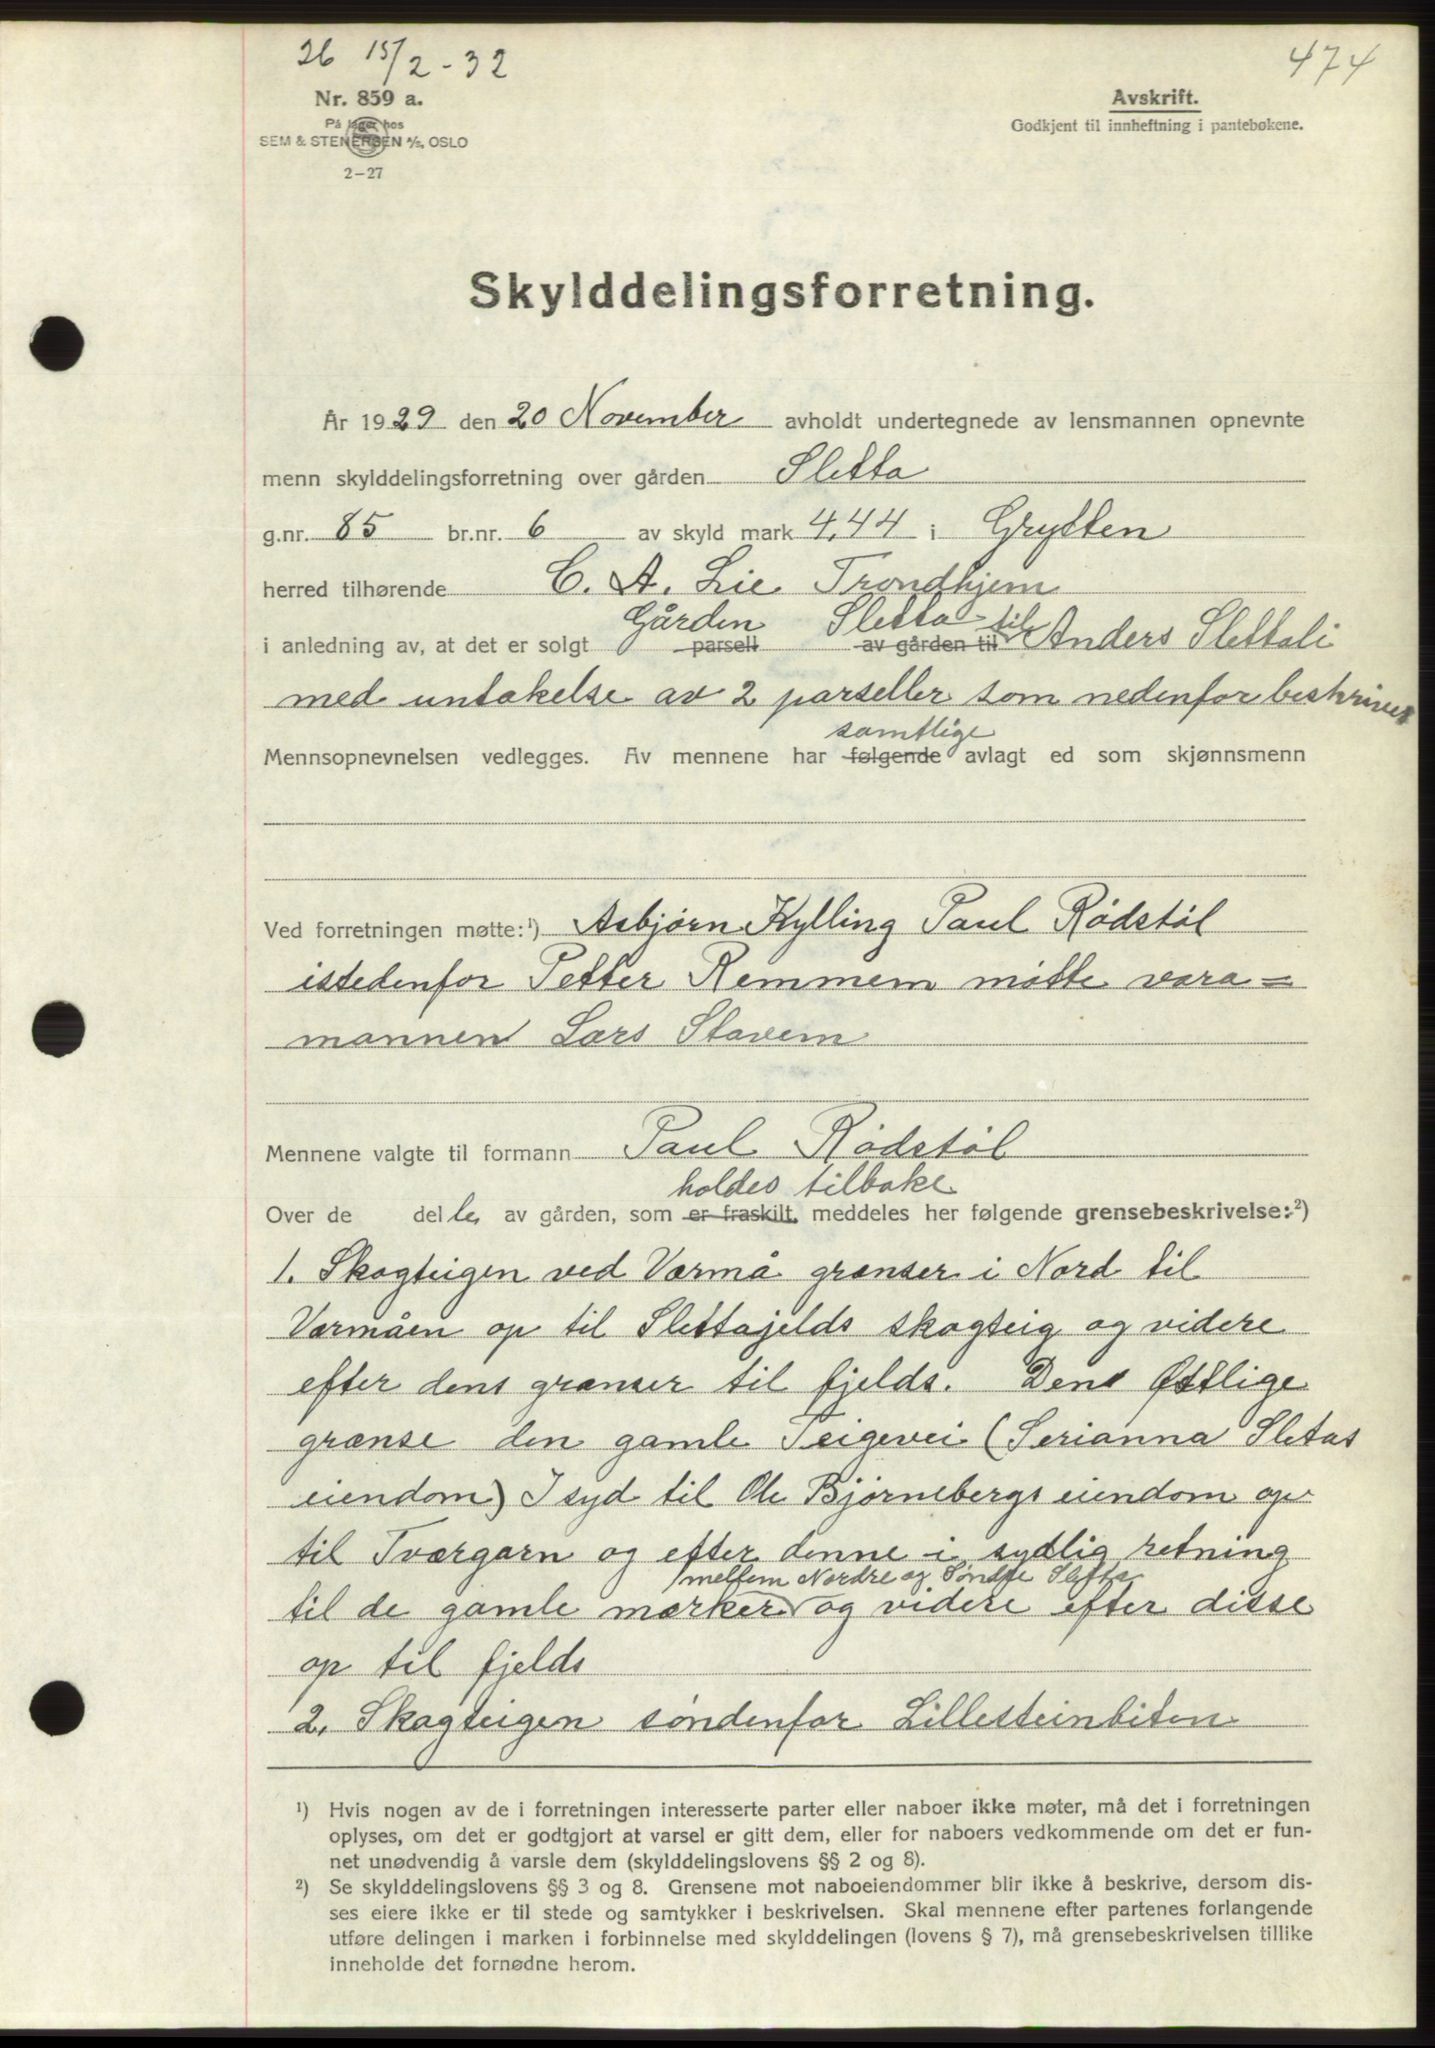 26 15/2 - 32
474
Nr. 859 a.
På lager hos
SEM & STENERSEN A/S, OSLO
2—27
Avskrift.
Godkjent til innheftning i pantebøkene.
Skylddelingsforretning.
År 1929 den 20 November avholdt undertegnede av lensmannen opnevnte
menn skylddelingsforretning over gården Sletta
g.nr. 85 br.nr. 6 av skyld mark 4,44 i Grytten
herred tilhørende C. A. Lie Trondhjem
Gården Sletta til
i anledning av, at det er solgt parsell av gården til Anders Slettali
med untakelse av 2 parseller som nedenfor beskrives
samtlige
Mennsopnevnelsen vedlegges. Av mennene har følgende avlagt ed som skjønnsmenn
Ved forretningen møtte:¹) Asbjørn Kylling Paul Rødstøl
istedenfor Petter Remmem møtte vara=
mannen Lars Stavem
Mennene valgte til formann Paul Rødstøl
holdes tilbake
Over de dele av gården, som er fraskilt, meddeles her følgende grensebeskrivelse:²)
1. Skogteigen ved Varmå grænser i Nord til
Varmåen op til Slettafjelds skogteig og videre
efter dens grænser til fjelds. Dens Østlige
grænse den gamle Teigevei (Serianna Sletas
eiendom) I syd til Ole Bjørnebergs eiendom op
til Tværgarn og efter denne i sydlig retning
mellem Nordre og Søndre Sletta
til de gamle mærker og videre efter disse
op til fjelds
2. Skogteigen søndenfor Lillesteinbiten
¹) Hvis nogen av de i forretningen interesserte parter eller naboer ikke møter, må det i forretningen
oplyses, om det er godtgjort at varsel er gitt dem, eller for naboers vedkommende om det er fun-
net unødvendig å varsle dem (skylddelingslovens §§ 2 og 8).
²) Se skylddelingslovens §§ 3 og 8. Grensene mot naboeiendommer blir ikke å beskrive, dersom dis-
ses eiere ikke er til stede og samtykker i beskrivelsen. Skal mennene efter partenes forlangende
utføre delingen i marken i forbinnelse med skylddelingen (lovens § 7), må grensebeskrivelsen tillike
inneholde det fornødne herom.